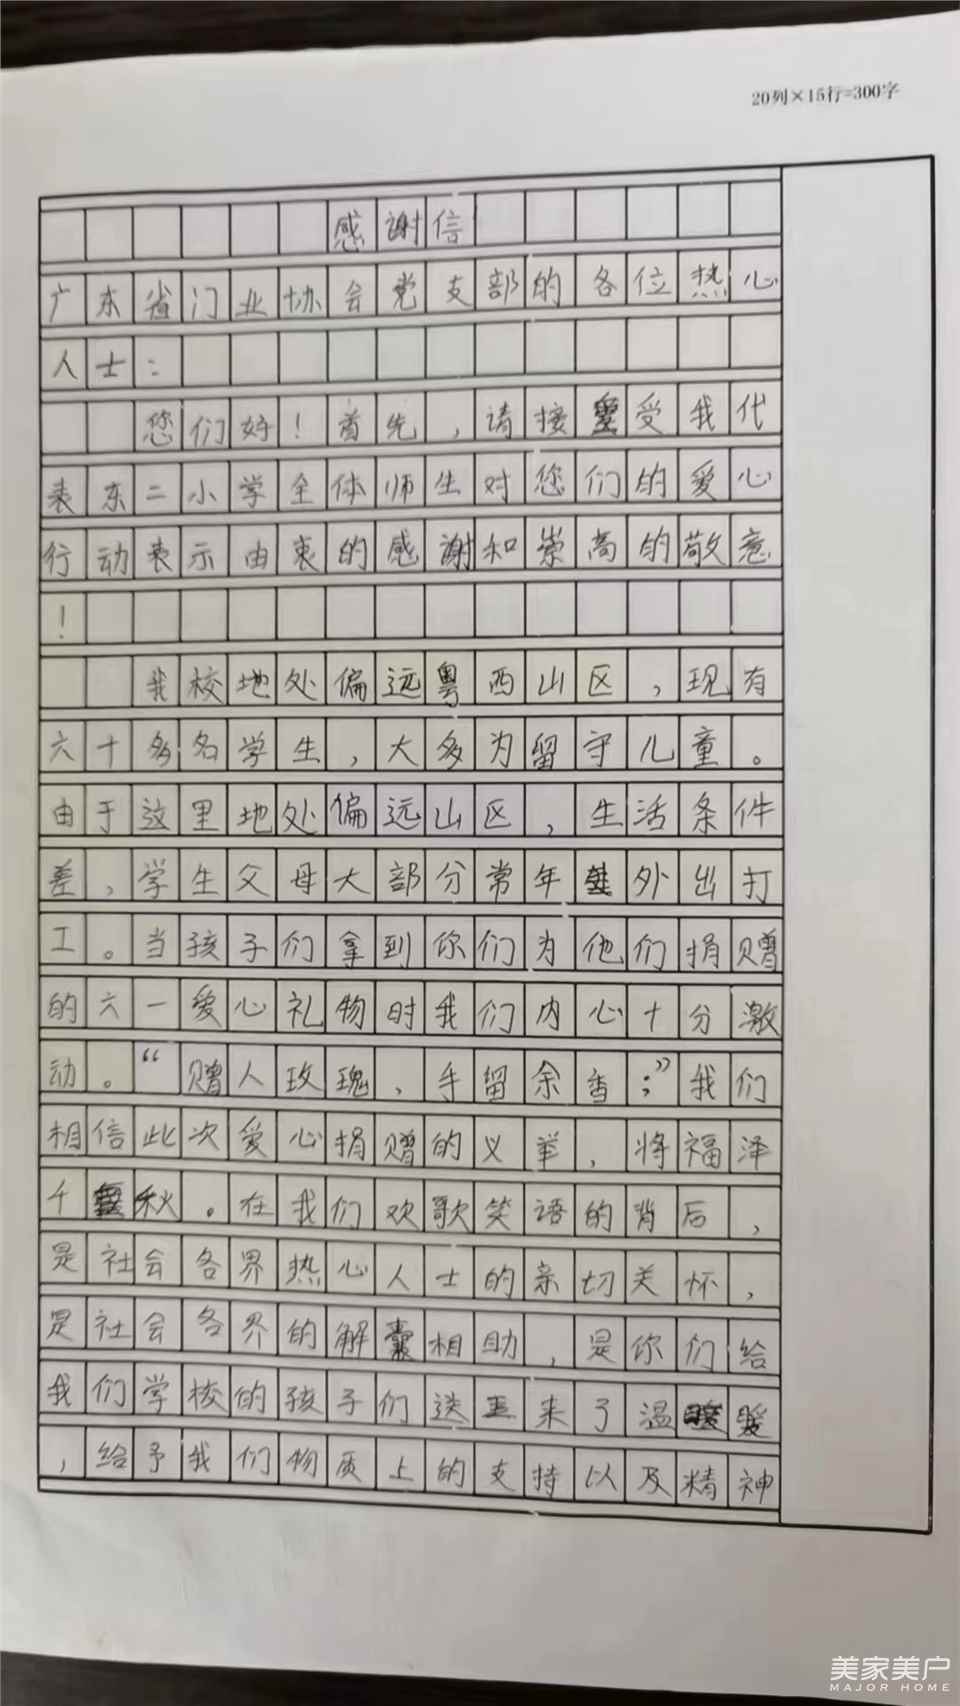 20列×15行=300字
感谢信
广东省门业协会党支部的各位热心
人士：
您们好！首先，请接受我代
表东二小学全体师生对您们的爱心
行动表示由衷的感谢和崇高的敬意
！
我校地处偏远粤西山区，现有
六十多名学生，大多为留守儿童。
由于这里地处偏远山区，生活条件
差，学生父母大部分常年外出打
工。当孩子们拿到你们为他们捐赠
的六一爱心礼物时我们内心十分激
动。“赠人玫瑰，手留余香；”我们
相信此次爱心捐赠的义举，将福泽
千秋。在我们欢歌笑语的背后，
是社会各界热心人士的亲切关怀，
是社会各界的解囊相助，是你们给
我们学校的孩子们送来了温暖
，给予我们物质上的支持以及精神
美家美户
MAJOR HOME